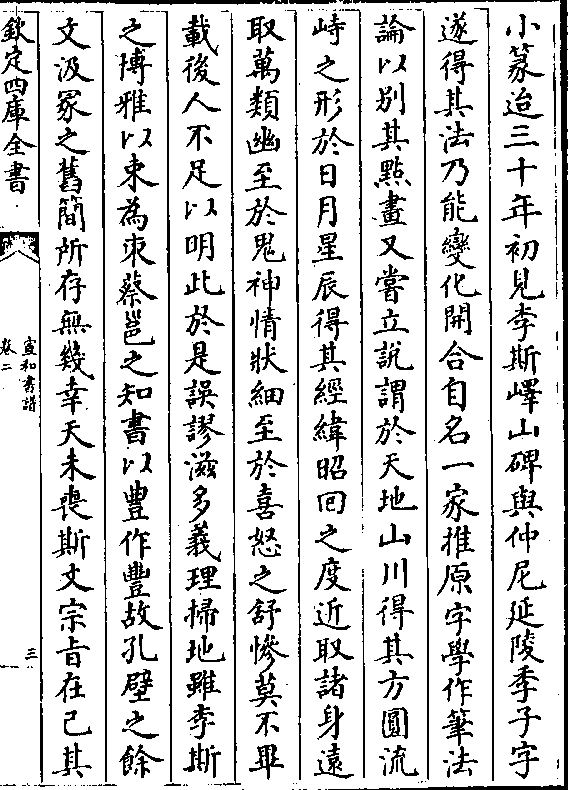 小篆迨三十年初見李斯嶧山碑與仲尼延陵季子字
遂得其法乃能變化開合自名一家推原字學作筆法
論以别其點畫又嘗立説謂於天地山川得其方圓流
峙之形於日月星辰得其經緯昭回之度近取諸身遠
取萬類幽至於鬼神情狀細至於喜怒之舒慘莫不畢
載後人不足以明此於是誤謬滋多義理掃地雖李斯
之博雅以束為宋蔡邕之知書以豊作豐故孔壁之餘
文汲冡之舊簡所存無幾幸天未喪斯文宗㫖在己其
欽定四庫全書
宣和書譜
卷二
三